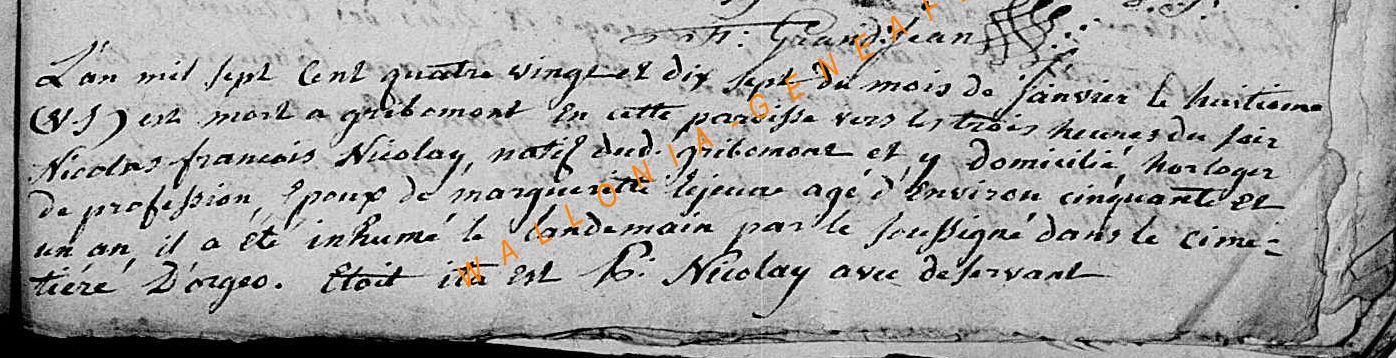 Grandjean
L'an mil sept Cent quatre vingt et dix sept du mois de janvier le huitieme
(VS) est mort a gribomont En cette paroisse vers les trois heures du soir
Nicolas françois Nicolay, natif dud. gribomont et y domicilié, horloger
de profession, Epoux de marguerite lejeune agé d'Environ cinquante et
un an, il a été inhumé le landemain par le soussigné dans le cime=
tiére D'orgeo. Etoit ita est Nicolay avec deservant
WALLONIA-GENEA